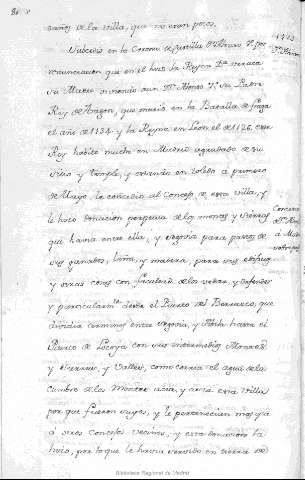 sueños de la Villa, que no eran pocos.
Subcedio en la Corona de Castilla Dn. Alonso 7º. por
renunciacion que en el hizo la Reyna Da. Urraca
su Madre viviendo aun Dn. Alonso 1º. su Padre
Rey de Aragon, que murio en la Batalla de Fraga
el año de 1134. y la Reyna en Leon el de 1126. este
Rey habito mucho en Madrid agradado de su
sitio y temple, y estando en Toledo a primero
de Mayo, le concedio al Concejo de esta Villa, y
le hizo donacion perpetua de los montes y sierras
que havia entre ella, y Segovia para pastos de
sus ganados, leña, y madera, para sus edificios
y otras cosas con facultad de los vedar, y defender
y particularmte. desde el Puerto del Berrueco, que
dividia terminos entre Segovia, y Abila hasta el
Puerto de Lozoya con sus intermedios Montes
y Sierras, y Valles, como corria el agua de la
Cumbre de los Montes acia, y acia esta Villa
por que fueron suyos, y le pertenecian mas que
à otros Concejos vecinos, y esta donacion la
hizo, por lo que le havia servido en tierra de
Biblioteca Regional de Madrid